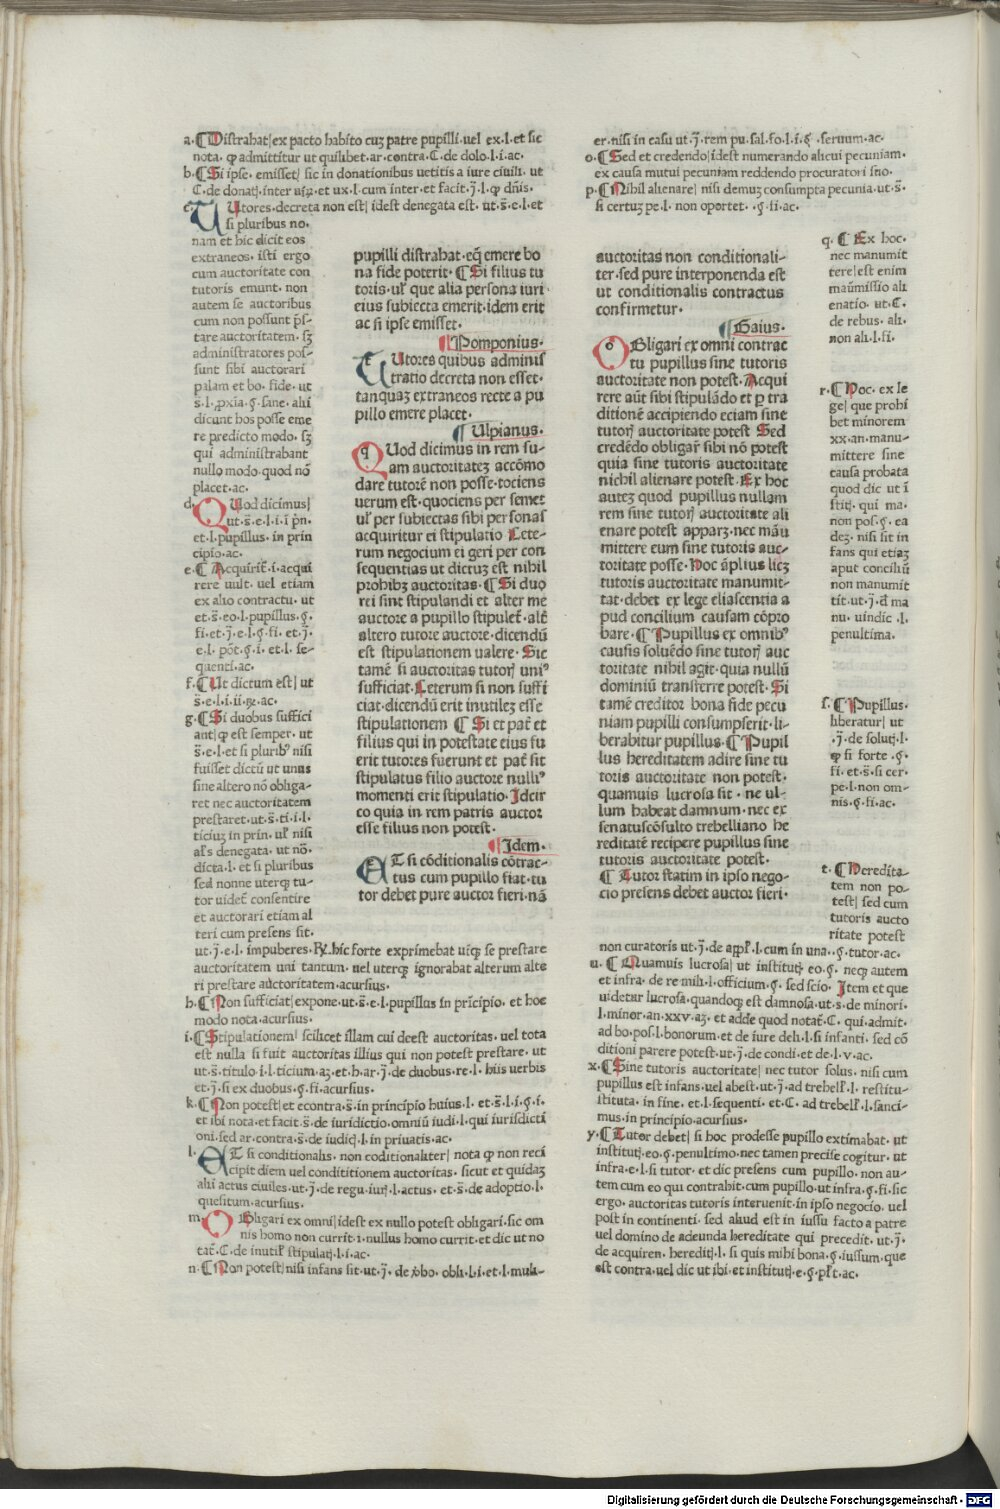 a.¶Distrahat|ex pacto habito cuꝫ patre pupilli.uel ex.l.et sic
nota. ꝙ admittitur ut quilibet.ar.contra.C.de dolo.l.i.ac.
b.¶Si ipse.emisset| sic in donationibus uetitis a iure ciuili.ut
C.de donatꝭ.inter uiꝝ.et ux.l.cum inter.et facit.j̄.l.ꝙ dn̄is.
c.TUtores.decreta non est| idest denegata est.ut.s̄.e.l.et
si pluribus no.
nam et hic dicit eos
extraneos. isti ergo
cum auctoritate con
tutoris emunt. non
autem se auctoribus
cum non possunt p̄s-
tare auctoritatem. sꝫ
administratores pos-
sunt sibi auctorari
palam et bo. fide. ut
s̄.l.ꝓxia.§.sane. alii
dicunt hos posse eme
re predicto modo. sꝫ
qui administrabant
nullo modo.quod nō
placet.ac.
d.QUod dicimus|
ut.s̄.e.l.i.i p̄n.
et.l.pupillus. in prin
cipio.ac.
e.¶Acquirit̄.i.acqui
rere uult. uel etiam
ex alio contractu. ut
et.s̄.eo.l.pupillus.§.
fi.et.j̄.e.l.§.fi. et.j̄.
e.l. pōt.§.i. et.l. se-
quenti.ac.
f.¶Ut dictum est| ut
s̄.e.l.i.ii.ꝝ.ac.
g.¶Si duobus suffici
ant|ꝙ est semper. ut
s̄.e.l.et si pluribꝰ nisi
fuisset dictū ut unus
sine altero nō obliga-
ret nec auctoritatem
prestaret.ut.s̄.ti.i.l.
ticiuꝫ in prin. ul̓ nisi
al̓s denegata. ut nō.
dicta.l. et si pluribus
sed nonne uterqꝫ tu-
tor uidet̄ consentire
et auctorari etiam al
teri cum presens sit.
ut.j̄.e.l. impuberes.℟. hic forte exprimebat uterqꝫ se prestare
auctoritatem uni tantum. uel uterqꝫ ignorabat alterum alte
ri prestare auctoritatem.acursius.
h.¶Non sufficiat|expone.ut.s̄.e.l.pupillus in prīcipio. et hoc
modo nota.acursius.
i.¶Stipulationem| scilicet illam cui deest auctoritas. uel tota
est nulla si fuit auctoritas illius qui non potest prestare. ut
ut.s̄.titulo.i.l.ticium.aꝫ.et.h.ar.j̄.de duobus.re.l. hiis uerbis
et.j̄.si ex duobus.§.fi.acursius.
k.¶Non potest|et econtra.s̄.in principio huius.l. et.s̄.l.i.§.i.
et ibi nota.et facit.s̄.de iuridictio.omniū iudi.l.qui iurisdicti
oni.sed ar.contra.s̄.de iudicꝭ.l.in priuatis.ac.
l.ET si conditionalis. non coditionaliter| nota ꝙ non reci
cipit diem uel condititionem auctoritas. sicut et quidaꝫ
alii actus ciuiles.ut.j̄.de regu.iurꝭ.l.actus. et.s̄.de adoptio.l.
quesitum.acursius.
m.OBligari ex omni|idest ex nullo potest obligari.sic om
nis homo non currit.i.nullus homo currit.et dic ut no
tat̄.C.de inutil̓ stipulatꝭ.l.i.ac.
n.¶Non potest|nisi infans sit.ut.j̄. de v̓bo. obli.l.i.et.l.muli-
pupilli distrahat.eqꝫ emere bo
na fide poterit.¶Si filius tu
toris.ul̓ que alia persona iuri
eius subiecta emerit.idem erit
ac si ipse emisset.
¶Pomponius.
TUtores quibus adminis
tratio decreta non esset.
tanquaꝫ extraneos recte a pu
pillo emere placet.
¶Ulpianus.
QUod dicimus in rem su-
am auctoritateꝫ accōmo
dare tutorē non posse.tociens
uerum est.quociens per semet
ul̓ per subiectas sibi personas
acquiritur ei stipulatio Cete-
rum negocium ei geri per con
sequentias ut dictuꝫ est nihil
prohibꝫ auctoritas.¶Si duo
rei sint stipulandi et alter me
auctore a pupillo stipulet̄.alt̄
altero tutore auctore.dicendū
est stipulationem ualere.Sic
tamē si auctoritas tutorꝭ uniꝰ
sufficiat.Ceterum si non suffi
ciat.dicendū erit inutileꝫ esse
stipulationem ¶Si et pat̄ et
filius qui in potestate eius fu
erit tutores fuerunt et pat̄ sit
stipulatus filio auctore nulliꝰ
momenti erit stipulatio.Idcir
co quia in rem patris auctor
esse filius non potest.
¶Idem.
ET si cōditionalis cōtrac-
tus cum pupillo fiat.tu
tor debet pure auctor fieri.nā
er.nisi in casu ut.j̄.rem pu.sal.fo.l.i.§.seruum.ac.
o.¶Sed et credendo|idest numerando alicui pecuniam.
ex causa mutui pecuniam reddendo procuratori suo.
p.¶Nihil alienare| nisi demuꝫ consumpta pecunia.ut.s̄.
si certuꝫ pe.l. non oportet.§.fi.ac.
auctoritas non conditionali-
ter.sed pure interponenda est
ut conditionalis contractus
confirmetur.
¶Gaius.
OBligari ex omni contrac
tu pupillus sine tutoris
auctoritate non potest.Acqui
rere aūt sibi stipulādo et p tra
ditionē accipiendo eciam sine
tutorꝭ auctoritate potest Sed
credēdo obligar̄ sibi nō potest
quia sine tutoris auctoritate
nichil alienare potest.Ex hoc
auteꝫ quod pupillus nullam
rem sine tutorꝭ auctoritate ali
enare potest apparꝫ.nec māu
mittere eum sine tutoris auc-
toritate posse.Hoc āplius licꝫ
tutoris auctoritate manumit-
tat.debet ex lege eliascentia a
pud concilium causam cōpro
bare.¶Pupillus ex omnibꝰ
causis soluēdo sine tutorꝭ auc
toritate nihil agit.quia nullū
dominiū transferre potest.Si
tamē creditor bona fide pecu
niam pupilli consumpserit.li-
berabitur pupillus.¶Pupil
lus hereditatem adire sine tu
toris auctoritate non potest.
quamuis lucrosa sit. ne ul-
lum habeat damnum.nec ex
senatuscōsulto trebelliano he
reditatē recipere pupillus sine
tutoris auctoritate potest.
¶Tutor statim in ipso nego-
cio presens debet auctor fieri.
q.¶Ex hoc.
nec manumit
tere|est enim
māumissio ali
enatio. ut.C.
de rebus.ali.
non ali.l.fi.
r.¶Hoc. ex le
ge| que prohi
bet minorem
xx.an.manu-
mittere sine
causa probata
quod dic ut ī
stitꝭ. qui ma.
non pos.§.ea
deꝫ. nisi sit in
fans qui etiaꝫ
aput conciliū
non manumit
tit.ut.j̄.d̄ ma
nu. uindic.l.
penultima.
s.¶Pupillus.
liberatur| ut
.j̄.de solutꝭ.l.
ꝙ si forte.§.
fi.et.s̄.si cer.
pe.l.non om-
nis.§.fi.ac.
t.¶Heredita-
tem non po-
test| sed cum
tutoris aucto
ritate potest
non curatoris ut.j̄.de appl̓.l.cum in una..§.tutor.ac.
u.¶Quamuis lucrosa| ut institutꝭ.eo.§. neqꝫ autem
et infra.de re mili.l.officium.§. sed scio. Item et que
uidetur lucrosa.quandoqꝫ est damnosa.ut.s̄.de minori.
l.minor.an.xxv.aꝫ. et adde quod notat̄.C. qui admit.
ad bo.pos.l.bonorum.et de iure deli.l.si infanti. sed cō
ditioni parere potest.ut.j̄.de condi.et de.l.v.ac.
x.¶Sine tutoris auctoritate| nec tutor solus. nisi cum
pupillus est infans.uel abest.ut.j̄.ad trebell̓.l. restitu-
istituta. in fine. et.l.sequenti.et.C. ad trebell̓.l.sanci-
mus.in principio.acursius.
y.¶Tutor debet| si hoc prodesse pupillo extimabat. ut
institutꝭ.eo.§.penultimo.nec tamen precise cogitur. ut
infra.e.l.si tutor. et dic presens cum pupillo. non au-
tem cum eo qui contrahit.cum pupillo.ut infra.§.fi.sic
ergo. auctoritas tutoris interuenit.in ipso negocio. uel
post in continenti. sed aliud est in iussu facto a patre
uel domino de adeunda hereditate qui precedit. ut.j̄.
de acquiren. hereditꝭ.l. si quis mihi bona.§.iussum.que
est contra.uel dic ut ibi.et institutꝭ.e.§.pl̓t.ac.
Digitalisierung gefördert durch die Deutsche Forschungsgemeinschaft - DFG